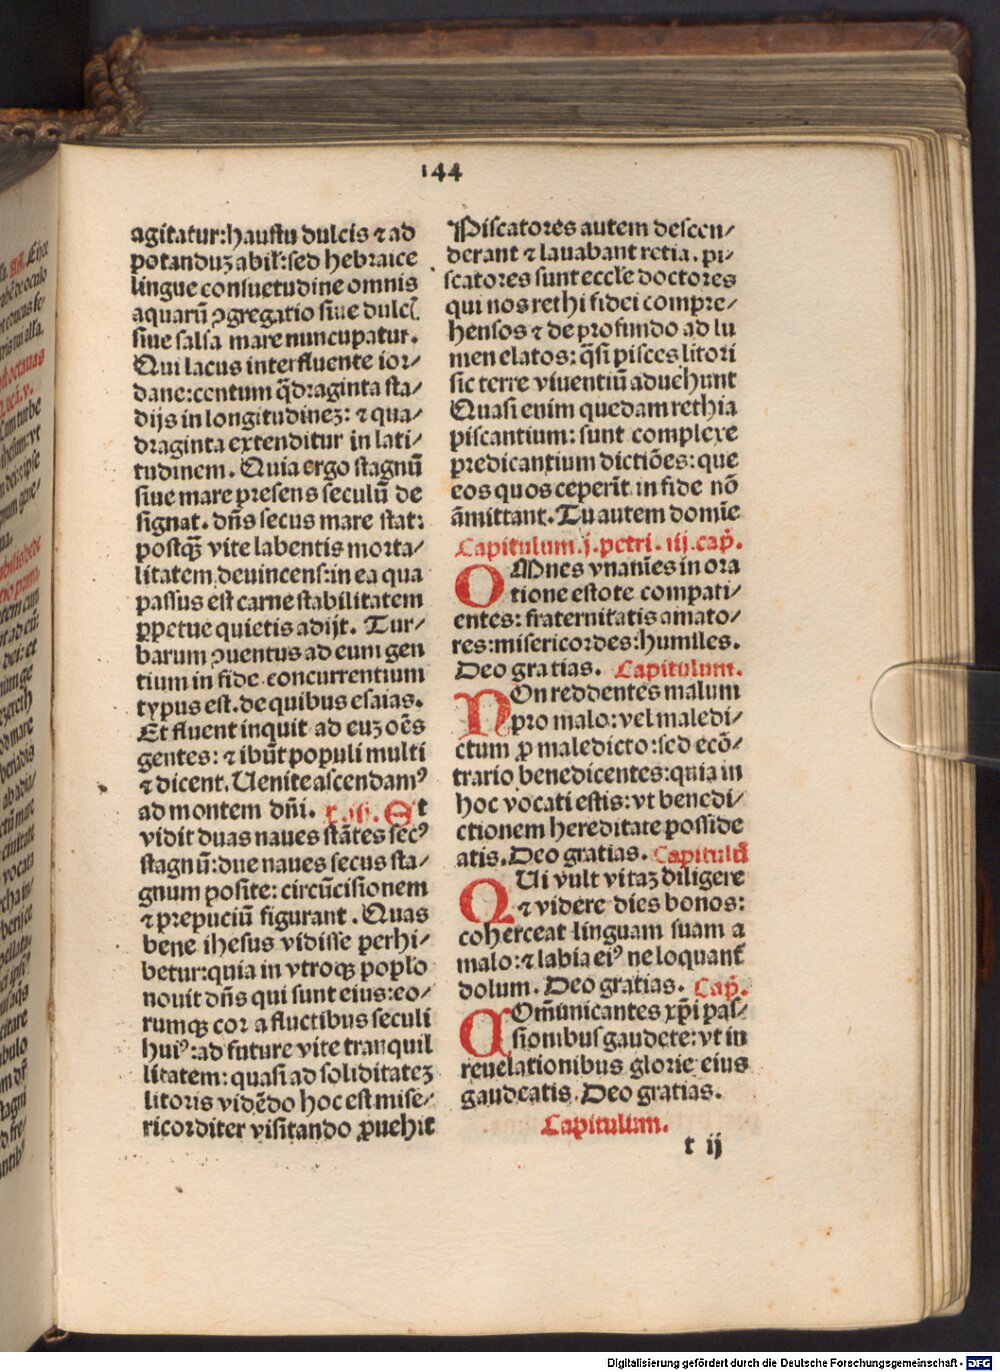 144
agitatur:haustu dulcis ⁊ ad
potanduꝫ abil':sed hebraice
lingue consuetudine omnis
aquarū ꝯgregatio siue dulcꝭ
siue salsa mare nuncupatur.
Qui lacus interfluente ior⸗
dane:centum q̄draginta sta⸗
dijs in longitudineꝫ: ⁊ qua⸗
draginta extenditur in lati⸗
tudinem. Quia ergo stagnū
siue mare presens seculū de
signat. dñs secus mare stat:
postꝙ̄ vite labentis morta⸗
litatem deuincens:in ea qua
passus est carne stabilitatem
ꝑpetue quietis adijt. Tur⸗
barum ꝯuentus ad eum gen
tium in fide concurrentium
typus est. de quibus esaias.
Et fluent inquit ad euꝫ oēs
gentes: ⁊ ibūt populi multi
⁊ dicent. Uenite ascendamꝰ
ad montem dñi. Et
vidit duas naues stātes secꝰ
stagnū:due naues secus sta⸗
gnum posite: circūcisionem
⁊ prepuciū figurant. Quas
bene ihesus vidisse perhi⸗
betur:quia in vtroqꝫ poplo
nouit dñs qui sunt eius:eo⸗
rumqꝫ cor a fluctibus seculi
huiꝰ:ad future vite tranquil
litatem: quasi ad soliditateꝫ
litoris vidēdo hoc est mise⸗
ricorditer visitando ꝓuehit
Piscatores autem descen⸗
derant ⁊ lauabant retia. pi⸗
scatores sunt eccle doctores
qui nos rethi fidei compre⸗
hensos ⁊ de profundo ad lu
men elatos: q̄si pisces litori
sic terre viuentiū aduehunt
Quasi enim quedam rethia
piscantium: sunt complexe
predicantium dictiōes: que
eos quos ceperīt in fide nō
āmittant. Tu autem domīe
Capitulum. j. petri. iij. cap̄.
OMnes vnanīes in ora
tione estote compati⸗
entes: fraternitatis amato⸗
res:misericordes:humiles.
Deo gratias. Capitulum.
NOn reddentes malum
pro malo: vel maledi⸗
ctum ꝓ maledicto:sed ecō⸗
trario benedicentes:quia in
hoc vocati estis: vt benedi⸗
ctionem hereditate posside
atis. Deo gratias. Capitulū
QUi vult vitaꝫ diligere
⁊ videre dies bonos:
coherceat linguam suam a
malo:⁊ labia eiꝰ ne loquant᷑
dolum. Deo gratias. Cap̄.
COm̄unicantes xp̄i pas⸗
sionibus gaudete: vt in
reuelationibus glorie eius
gaudeatis. Deo gratias.
Capitulum.
t ij
Digitalisierung gefördert durch die Deutsche Forschungsgemeinschaft - DFG